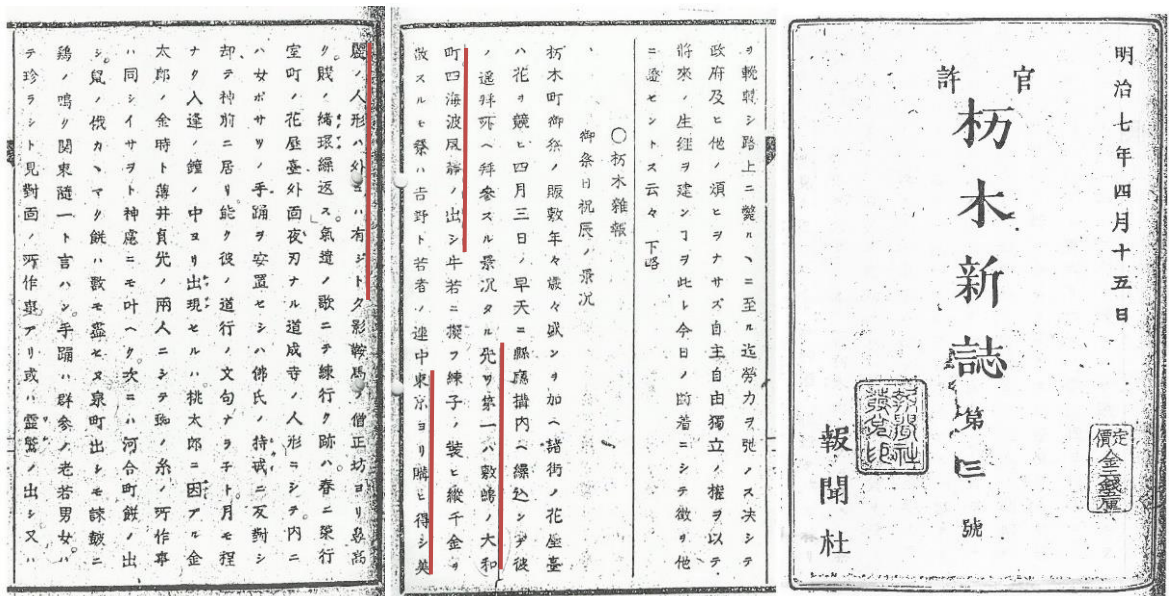 明治七年四月十五日
官許
枥木新誌 第三號
定價
報聞社
ヲ輓シ路上ニ斃ルヽニ至ル迄勞力ヲ弛ノス决シテ
政府及ヒ他ノ須ヒヲナサズ自主自由獨立ノ權ヲ以テ
將來ノ生經ヲ建ンコヲ此レ今日ノ断着ニシテ徴ヲ他
ニ證セントス云々 下略
〇枥木雜報
御祭日祝辰ノ景况
枥木町御祭ノ賑敷年々歳々盛ンヲ加ヘ諸街ノ花屋臺
ハ花ヲ競ヒ四月三日ノ早天ニ縣廳搆内ヘ繰込ンデ彼
ノ遥拜所ヘ拜参スル景况タル先ツ第一ハ敷嶋ノ大和
町四海波風静ノ出シ牛若ニ擬フ練子ノ装ヒ縦千金ヲ
散スルモ祭ハ吉野ト若者ノ連中東京ヨリ購ヒ得シ美
麗ノ人形ハ外ニハ有ジトタ影鞍馬ノ僧正坊ヨリ最高
ク賤ノ緒環繰返ス氣遣ノ歌ニテ練行ク跡ハ春ニ榮行
室町ノ花屋臺外面夜刃ナル道成寺ノ人形ニシテ内ニ
ハ女ボサリノ手踊ヲ安置セシハ佛氏ノ持戒ニ反對シ
却テ神前ニ居リ能ク彼ノ道行ノ文句ナラチト月モ程
ナク入逢ノ鐘ノ中ヨリ出現セルハ桃太郎ニ因アル金
太郎ノ金時ト薄井貞光ノ兩人ニシテ蜘ノ糸ノ所作事
ハ同シイサヲト神慮ニモ叶ヘク次ニハ河合町餅ノ出
シ鼠ノ俄カヽマク餅ハ數モ盡セヌ泉町出シモ諌皷ニ
鶏ノ鳴ク関東随一ト言ハン手踊ハ群参ノ老若男女ハ
テ珍ラシト見對面ノ所作臺アリ或ハ靈鷲ノ出シ又ハ